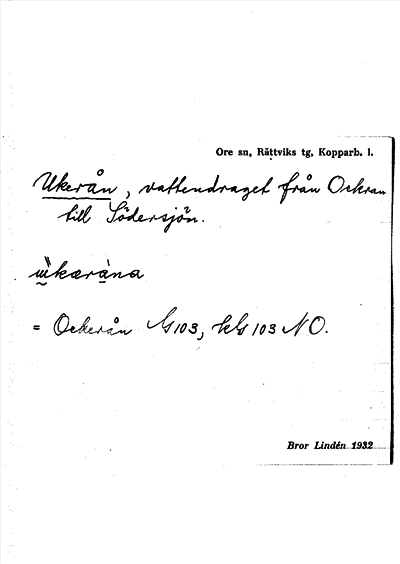 Ore sn, Rättviks tg, Kopparb. l.
Ukerån, vattendraget från Ockran
till Södersjön.
ùkæràna
= Ockerån G103, kbl 103 NO.
Bror Lindén 1932